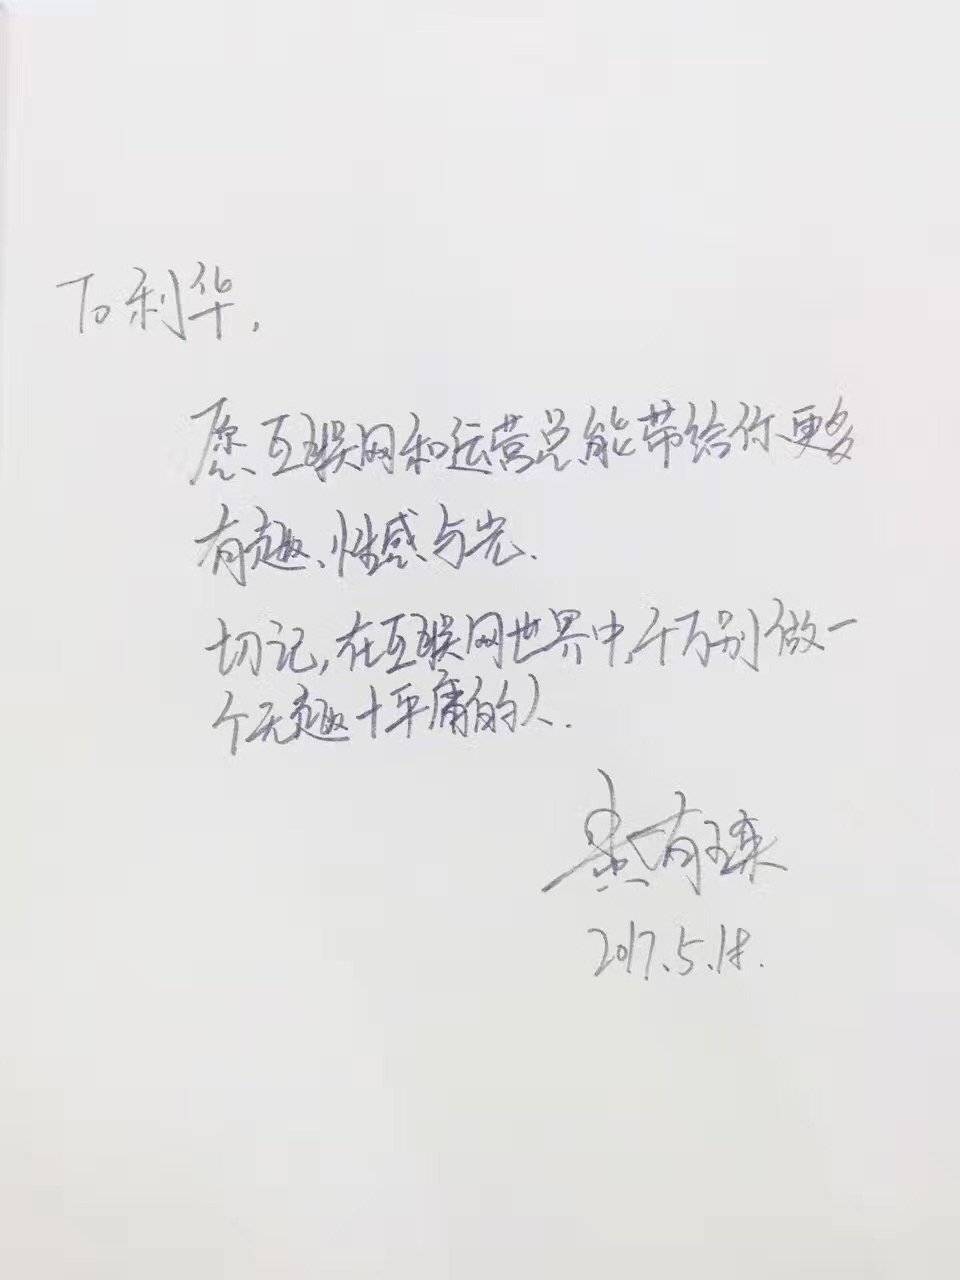 To 利华,
愿互联网和运营总能带给你更多
有趣、性感与光.
切记,在互联网世界中,千万别做一
个无趣+平庸的人.
黄有璨
2017.5.18.